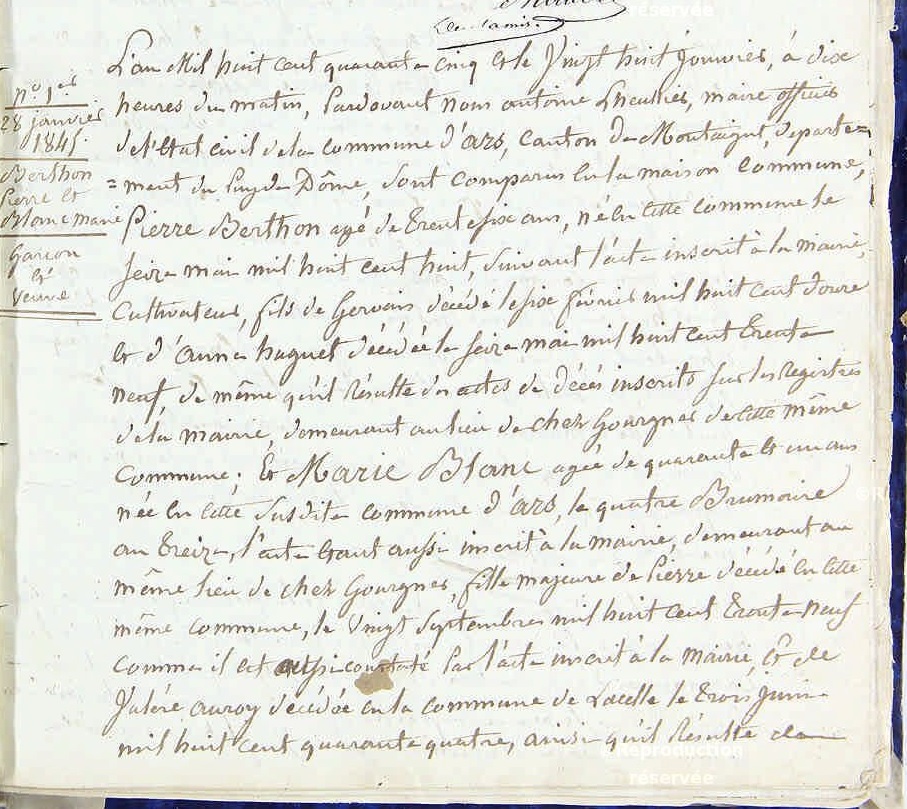 réservée
n.º 1.er
28 janvier
1845.
Berthon
Pierre et
Blanc marie
Garçon
et
Veuve
L'an Mil huit cent quarante cinq et le Vingt huit Janvier, à dixe
heures du matin, Pardevant nous antoine Lheullier, maire officier
de l'Etat civil de la commune d'ars, canton de Montaigut, departe=
=ment du Puy de Dôme, sont comparus en la maison commune,
Pierre Berthon agé de trente six ans, né en cette commune le
seize mai mil huit cent huit, suivant l'acte inscrit à la mairie,
Cultivateur, fils de Gervais décédé le six février mil huit cent douze
et d'anne huguet décédée le seize mai mil huit cent trente
neuf, de même qu'il Résulte des actes de décès inscrits sur les Registres
de la mairie, demeurant au lieu de chez Gourgnes de cette même
Commune; Et Marie Blanc agée de quarante et un ans
née en cette susdite commune d'ars, le quatre Brumaire
an treize, l'acte étant aussi inscrit à la mairie, demeurant au
même lieu de chez Gourgnes, fille majeure de Pierre décédé en cette
même commune, le Vingt Septembre mil huit cent trente neuf
comme il est aussi constaté par l'acte inscrit à la mairie, & de
auroy décédée en la commune de Lacelle le trois Juin
mil huit cent quarante quatre, ainsi qu'il Résulte de
Reproduction
réservée